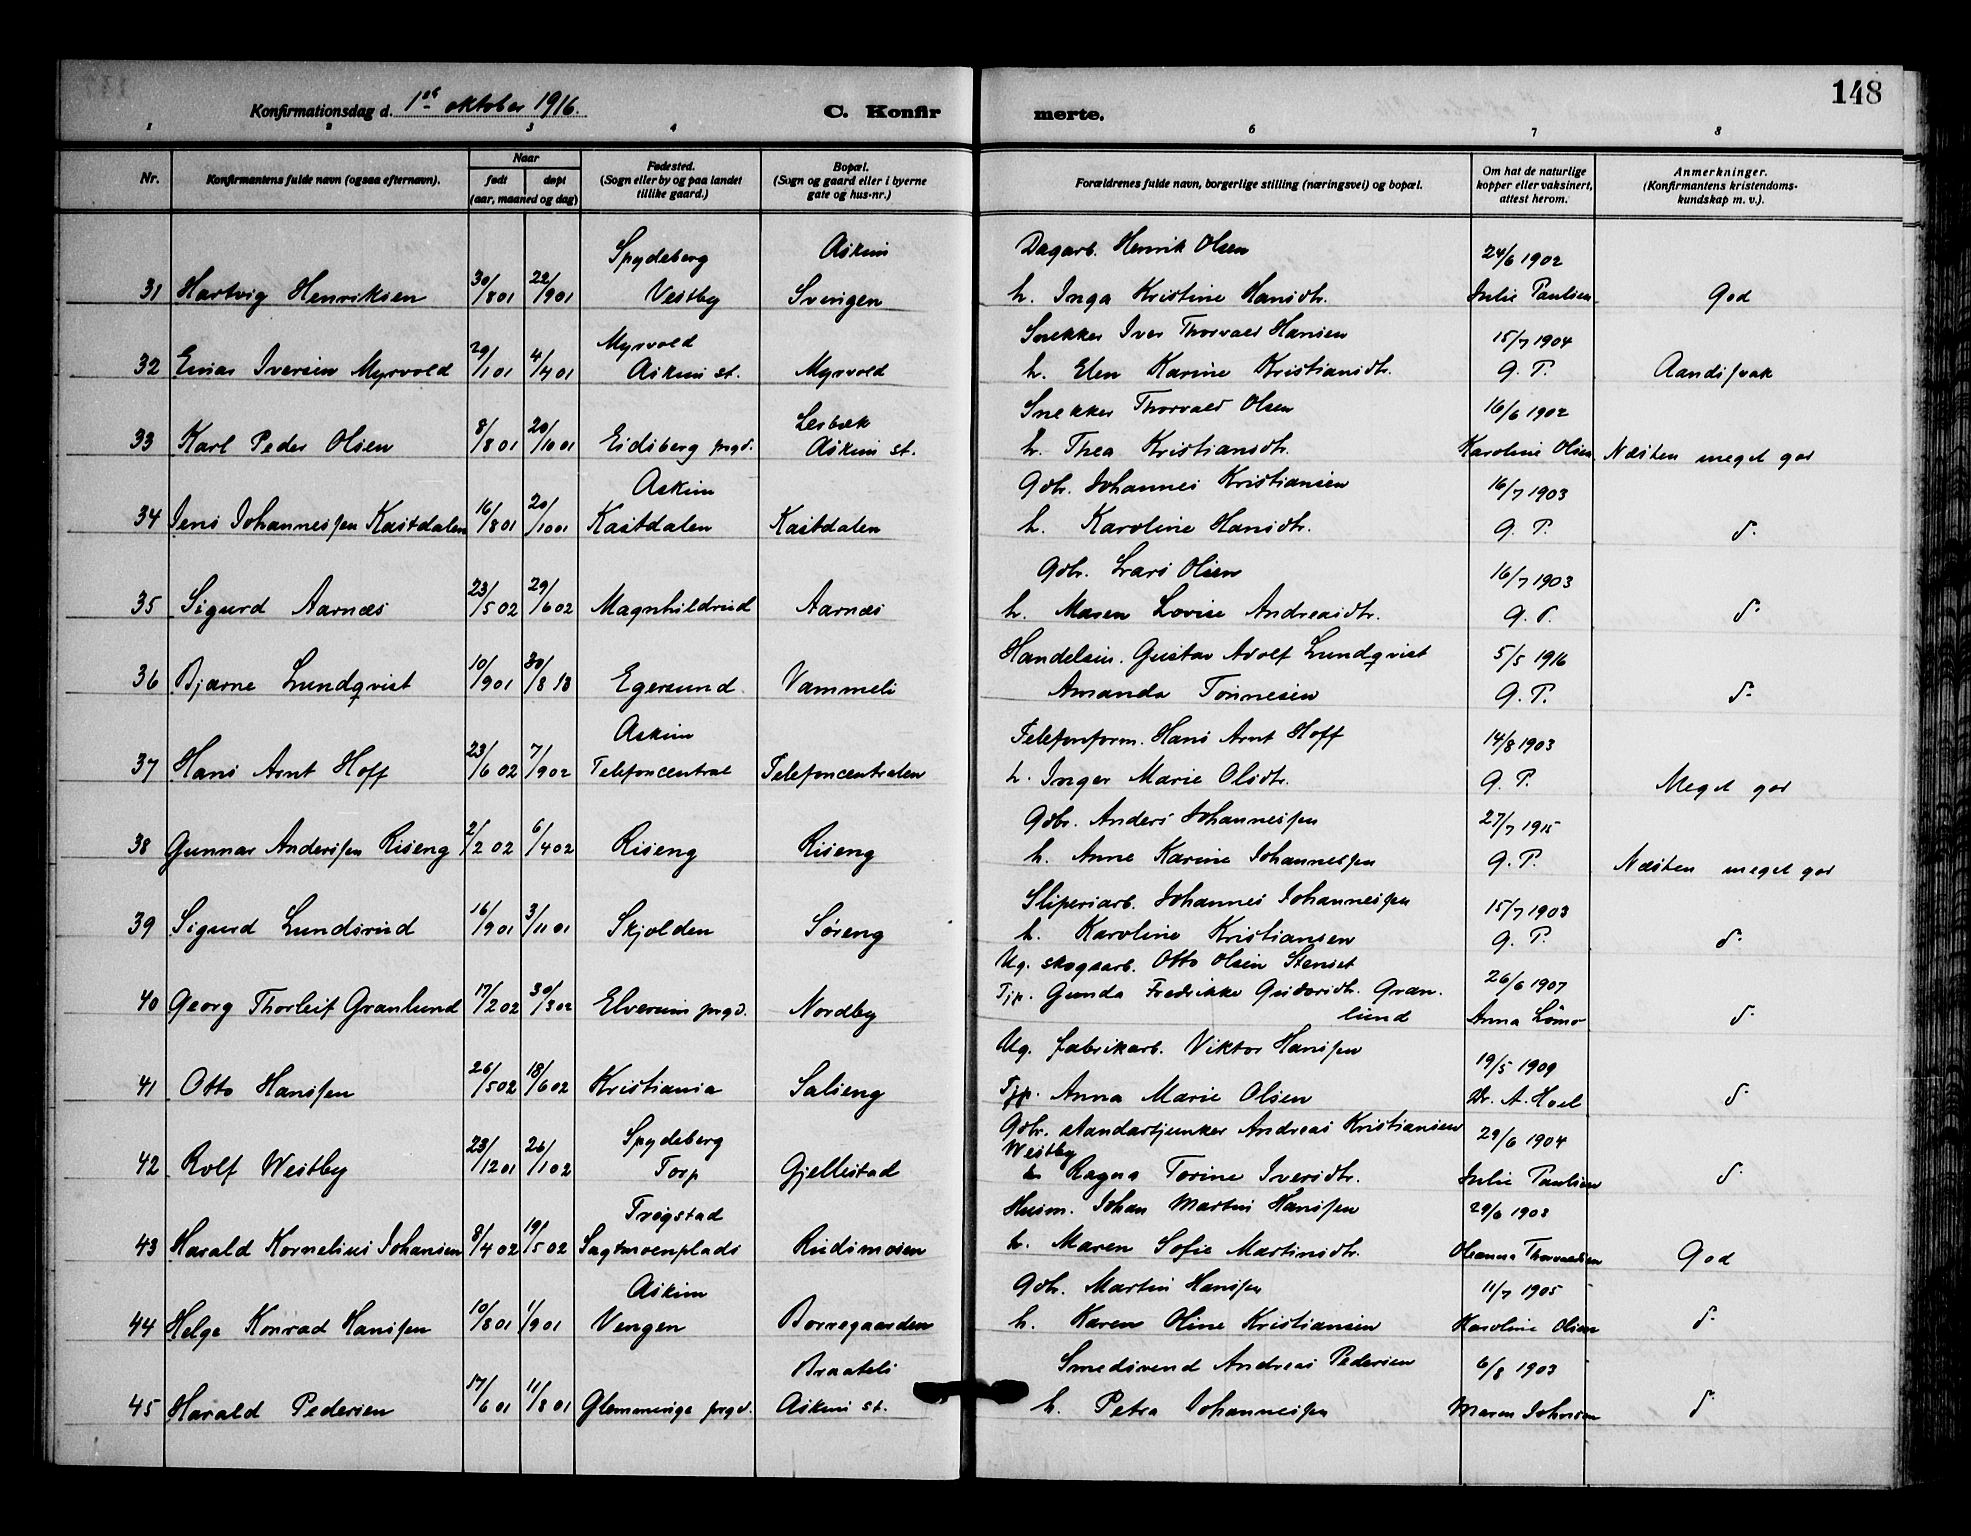 148
Konfirmationsdag d. 1ste oktober 1916. C. Konfirmerte.
1 2 3 4 6 7 8
Nr. Konfirmantens fulde navn (ogsaa efternavn). Naar født døpt (aar, maaned og dag) Fødested. (Sogn eller by og paa landet tillike gaard.) Bopæl. (Sogn og gaard eller i byerne gate og hus-nr.) Forældrenes fulde navn, borgerlige stilling (næringsvei) og bopæl. Om hat de naturlige kopper eller vaksinert, attest herom. Anmerkninger. (Konfirmantens kristendomskundskap m. v.).
Spydeberg Askim Dagarb. Henrik Olsen 24/6 1902
31 Hartvig Henriksen 30/8 01 22/9 01 Vestby Svingen h. Inga Kristine Hansdtr. Julie Paulsen God
Myrvold Snekker Iver Thorvald Hansen 15/7 1904
32 Einar Iversen Myrvold 29/1 01 4/4 01 Askim st. Myrvold h. Elen Karine Kristiansdtr. G. P. Aandssvak
Lesbæk Snekker Thorvald Olsen 16/6 1902
33 Karl Peder Olsen 8/8 01 20/10 01 Eidsberg prgd. Askim st. h. Thea Kristiansdtr. Karoline Olsen Næsten meget god
Askim Gbr. Johannes Kristiansen 16/7 1903
34 Jens Johannesen Kastdalen 16/8 01 20/10 01 Kastdalen Kastdalen h. Karoline Hansdtr. G. P. d.
Gbr. Lars Olsen 16/7 1903
35 Sigurd Aarnæs 23/5 02 29/6 02 Magnhildrud Aarnæs h. Maren Lovise Andreasdtr. G. P. d.
Handelsm. Gustav Adolf Lundqvist 5/5 1916
36 Bjarne Lundqvist 10/9 01 30/8 13 Egersund Vammeli Amanda Tønnesen G. P. d.
Askim Telefonform. Hans Arnt Hoff 14/8 1903
37 Hans Arnt Hoff 23/6 02 7/9 02 Telefoncentral Telefoncentralen h. Inger Marie Olsdtr. G. P. Meget god
Gbr. Anders Johannessen 27/7 1915
38 Gunnar Anderssen Riseng 2/2 02 6/4 02 Riseng Riseng h. Anne Karine Johannessen G. P. Næsten meget god
Sliperiarb. Johannes Johannessen 15/7 1903
39 Sigurd Lundsrud 16/9 01 3/11 01 Skjolden Søreng h. Karoline Kristiansen G. P. d.
Ug. skogsarb. Otto Olsen Stenset 26/6 1907
40 Georg Thorleif Granlund 17/2 02 30/3 02 Elverum prgd. Nordby Tjp. Gunda Fredrikke Gudbrdtr. Granlund Anna Lømo d.
Ug. fabrikarb. Viktor Hanssen 19/5 1909
41 Otto Hanssen 26/5 02 18/6 02 Kristiania Salseng Tjp. Anna Marie Olsen Dr. A. Hoel d.
Spydeberg Gbr. standartjunker Andreas Kristiansen Westby 29/6 1904
42 Rolf Westby 23/12 01 26/1 02 Torp Gjellestad h. Ragna Torine Iversdtr. Julie Paulsen d.
Trøgstad Husm. Johan Martin Hanssen 29/6 1903
43 Harald Kornelius Johansen 8/4 02 19/5 02 Sagtmoenplads Rudsmoen h. Maren Sofie Martinsdtr. Oleanna Thorvaldsen God
Askim Gbr. Martin Hanssen 11/7 1905
44 Helge Konrad Hanssen 10/8 01 1/9 01 Vengen Borregaarden h. Karen Oline Kristiansen Karoline Olsen d.
Braateli Smedsvend Andreas Pedersen 6/8 1903
45 Harald Pedersen 17/6 01 11/8 01 Glemminge prgd. Askim st. h. Petra Johannessen Maren Johnsen d.